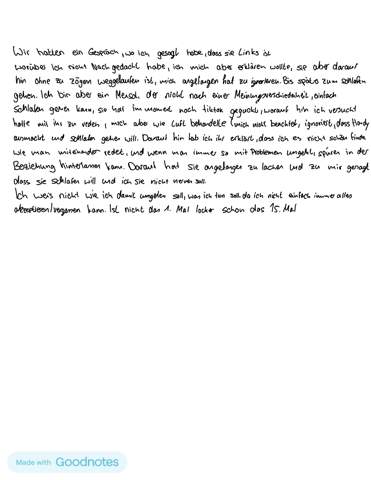 Wir hatten ein Gespräch, wo ich gesagt habe, dass sie Links ist
worüber ich nicht Nachgedacht habe, ich mich aber erklären wollte, sie aber darauf
hin ohne zu zögern weggelaufen ist, mich angefangen hat zu ignorieren. Bis später zum schlafen
gehen. Ich bin aber ein Mensch, der nicht nach einer Meinungsverschiedenheit, einfach
schlafen gehen kann, sie hat im moment noch tiktok geguckt, worauf hin ich versucht
hatte mit ihr zu reden, mich aber wie Luft behandelte (mich nicht beachtet, ignoriert, dass Handy
ausmacht und schlafen gehen will. Darauf hin hab ich ihr erklärt, dass ich es nicht schön finde
wie man miteinander redet, und wenn man immer so mit Problemen umgeht, spuren in der
Beziehung hinterlassen kann. Darauf hat sie angefangen zu lachen und zu mir gesagt
dass sie schlafen will und ich sie nicht nerven soll.
Ich weis nicht wie ich damit umgehen soll, was ich tun soll da ich nicht einfach immer alles
akzeptieren/vergessen kann. Ist nicht das 1. Mal locker schon das 15. Mal
Made with Goodnotes